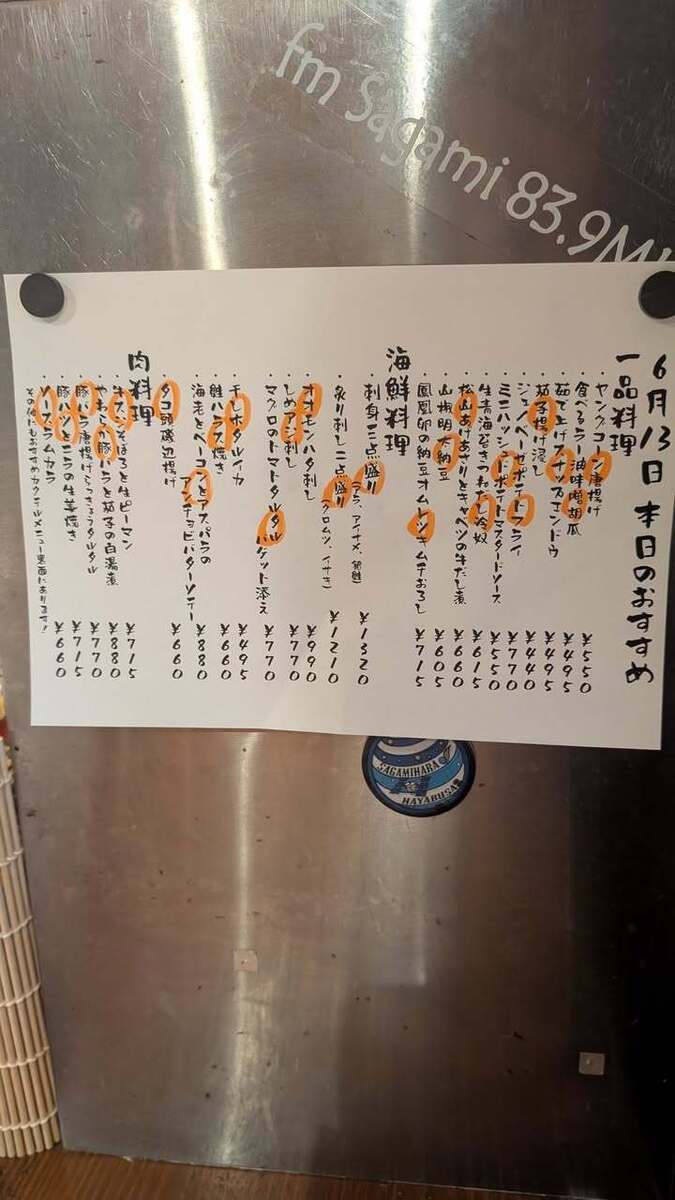 fm Sagami 83.9M
6月13日 本日のおすすめ
一品料理
・ヤングコーン唐揚げ ¥550
・食べるラー油味噌胡瓜 ¥495
・茹で上げスナップエンドウ ¥495
・茄子揚げ浸し ¥440
・ジェノベーゼポテトフライ ¥770
・ミニハッシュドポテトマスタードソース ¥550
・生青海苔きつねだし冷奴 ¥615
・松山あげあさりとキャベツの牛だし煮 ¥660
・山椒明太納豆 ¥605
・鳳凰卵の納豆オムレツキムチおろし ¥715
海鮮料理
・刺身三点盛り ¥1320
(タラ、アイナメ、
・炙り刺し二点盛り ¥1210
(クロムツ、イサキ)
・オオモンハタ刺し ¥990
・しめアジ刺し ¥770
・マグロのトマトタルタルバゲット添え ¥770
・干しホタルイカ ¥495
・鮭ハラス焼き ¥660
・海老とベーコンとアスパラの
アンチョビバターソテー ¥880
・タコ頭磯辺揚げ ¥660
肉料理
・牛スジそぼろと生ピーマン ¥715
・やわらか豚バラと茄子の白湯煮 ¥880
・豚バラ唐揚げらっきょうタルタル ¥770
・豚ハツとニラの生姜焼き ¥715
¥660
その他にもおすすめカクテルメニュー裏面にあります!
SAGAMIHARA
HAYABUSA